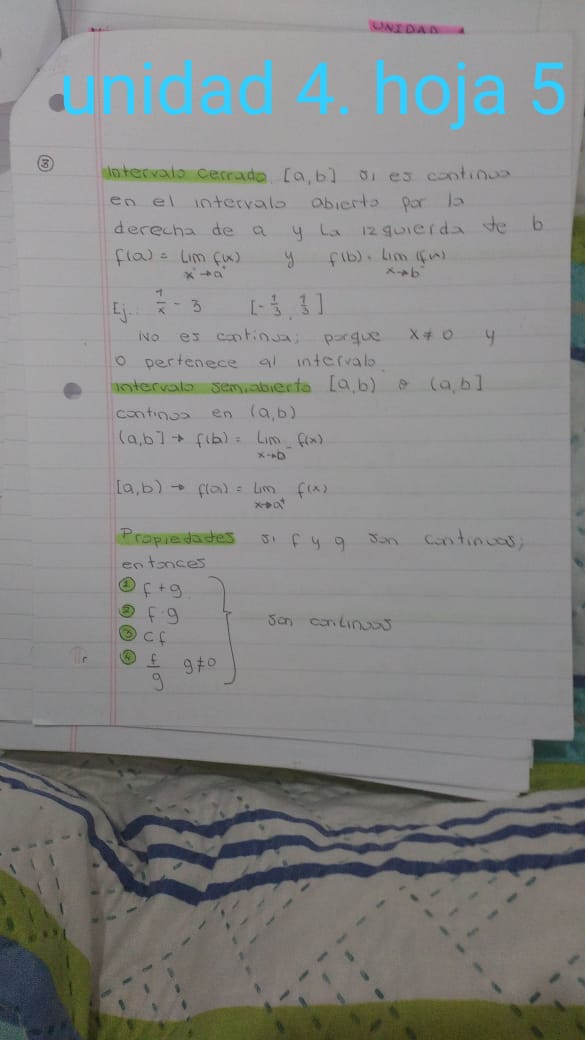 UNIDAD
unidad 4. hoja 5
③
Intervalo cerrado. [a,b] si es continua
en el intervalo abierto por la
derecha de a y la izquierda de b
f(a) = lim f(x) y f(b) = lim f(x)
x→a⁺ x→b⁻
Ej. 1/x - 3 [-1/3, 1/3]
No es continua; porque x≠0 y
0 pertenece al intervalo
intervalo semiabierto [a,b) o (a,b]
continua en (a,b)
(a,b] → f(b) = lim f(x)
x→b⁻
[a,b) → f(a) = lim f(x)
x→a⁺
Propiedades si f y g son continuas;
entonces
① f+g
② f·g
③ cf
④ f/g g≠0
son continuas